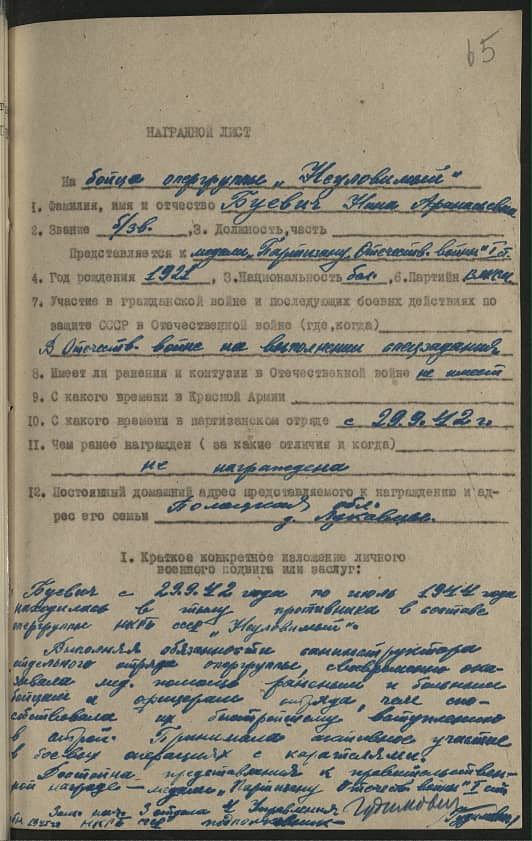 65
НАГРАДНОЙ ЛИСТ
На бойца опергруппы „Неуловимый"
1. Фамилия, имя и отчество Буевич Нина Афанасьевна
2. Звание б/зв. ,3. Должность,часть
Представляется к медали „Партизану Отечеств. войны" I ст.
4. Год рождения 1921 , 3.Национальность бел. ,6.Партийн ВЛКСМ
7. Участие в гражданской войне и последующих боевых действиях по
защите СССР в Отечественной войне (где,когда)
В Отечеств. войне на выполнении спецзадания
8. Имеет ли ранения и контузии в Отечественной войне не имеет
9. С какого времени в Красной Армии
10. С какого времени в партизанском отряде с 29.9.42 г.
11. Чем ранее награжден ( за какие отличия и когда)
не награждена
12. Постоянный домашний адрес представляемого к награждению и ад-
рес его семьи Полоцкая обл.
д.
I. Краткое конкретное изложение личного
военного подвига или заслуг:
Буевич с 29.9.42 года по июль 1944 года
находилась в тылу противника в составе
опергруппы НКГБ СССР „Неуловимый".
Выполняя обязанности санинструктора
отдельного отряда опергруппы, своевременно ока-
зывала мед. помощь раненым и больным
бойцам и офицерам отряда, чем спо-
собствовала их быстрейшему вступлению
в строй. Принимала активное участие
в боевых операциях с карателями.
Достойна представления к правительствен-
ной награде — медали „Партизану Отечеств войны" I ст
Зам. нач. 3 отдела 4 Управления
НКГБ СССР подполковник Гудимович